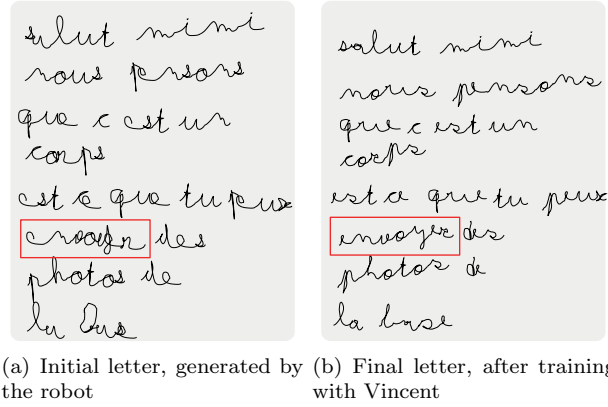 salut mimi
nous pensons
que c est un
corps
est ce que tu peux
des
photos de
la
salut mimi
nous pensons
que c est un
corps
est ce que tu peux
envoyer des
photos de
la base
(a) Initial letter, generated by
the robot
(b) Final letter, after training
with Vincent